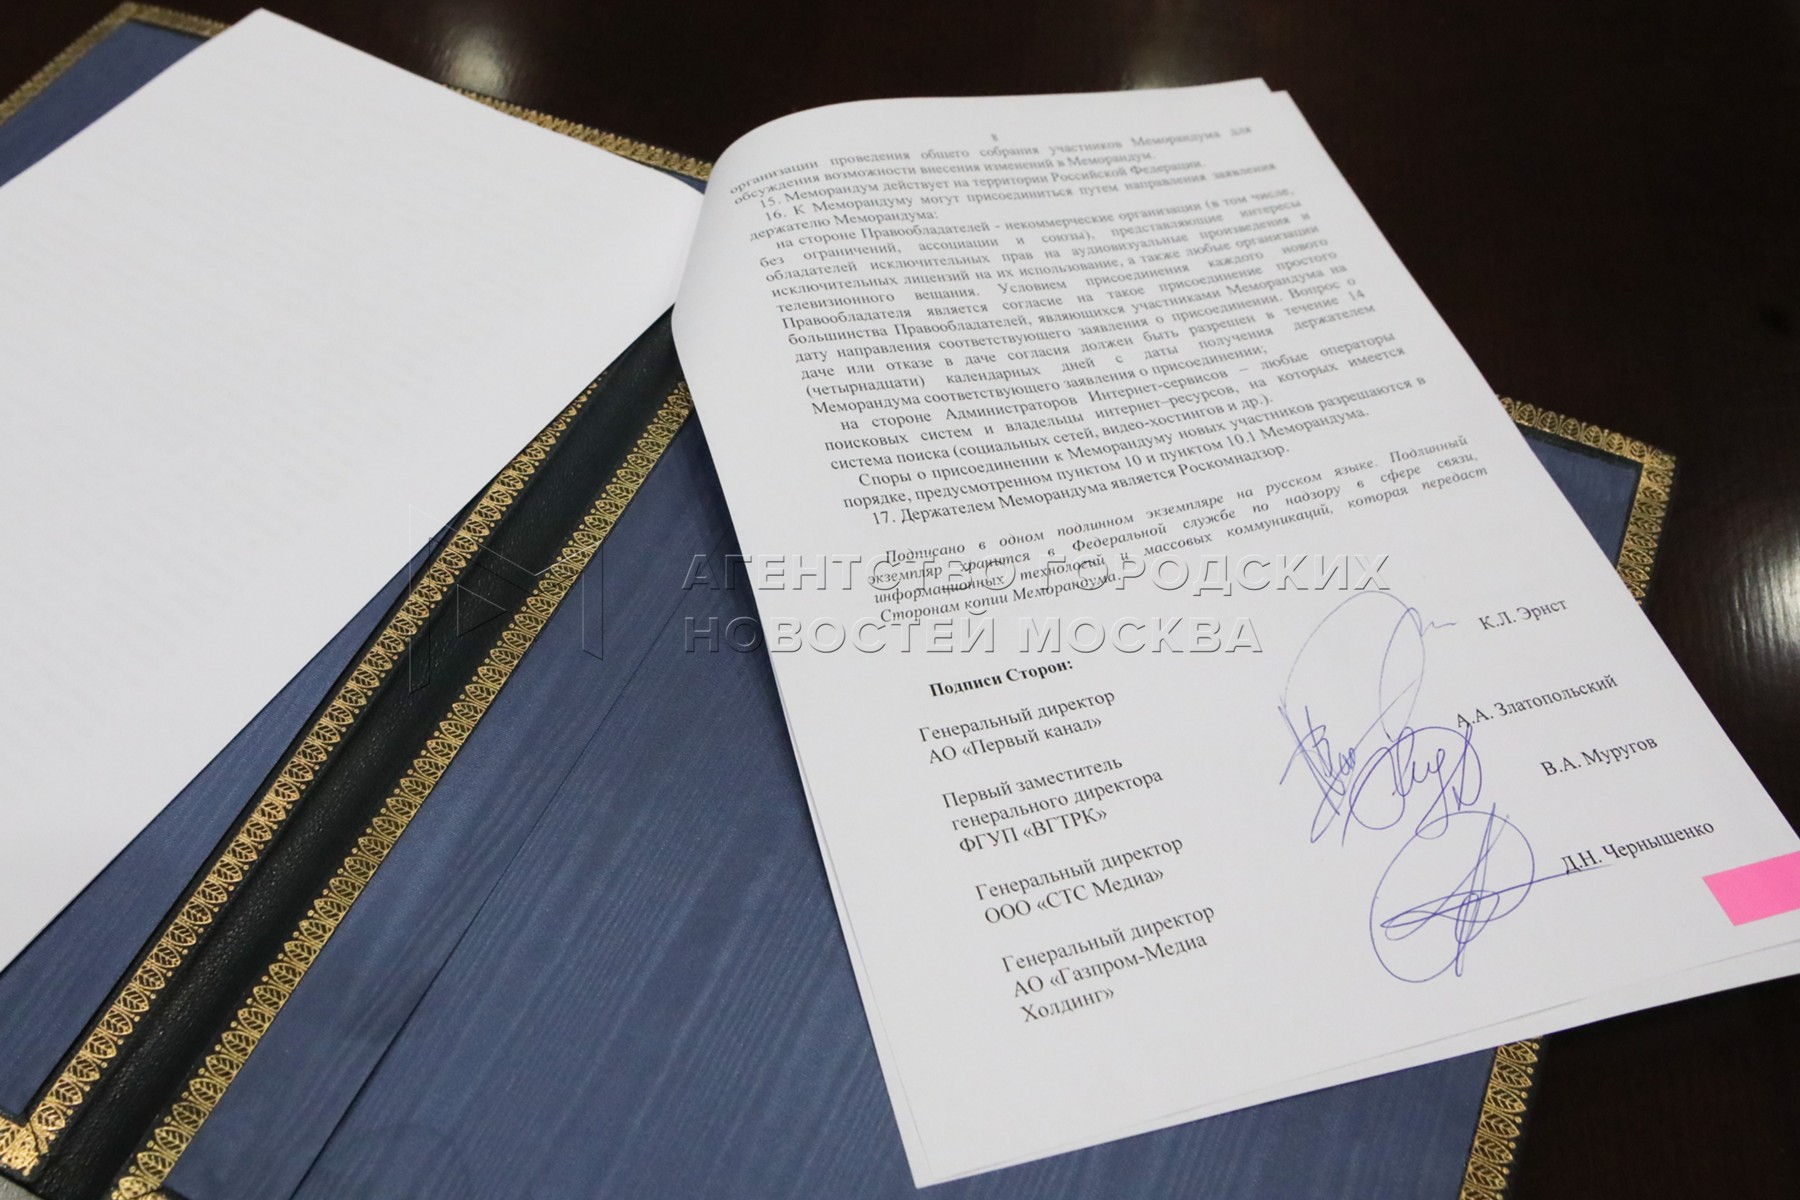 8
организации проведения общего собрания участников Меморандума для
обсуждения возможности внесения изменений в Меморандум.
15. Меморандум действует на территории Российской Федерации.
16. К Меморандуму могут присоединиться путем направления заявления
держателю Меморандума:
на стороне Правообладателей - некоммерческие организации (в том числе,
без ограничений, ассоциации и союзы), представляющие интересы
обладателей исключительных прав на аудиовизуальные произведения и
исключительных лицензий на их использование, а также любые организации
телевизионного вещания. Условием присоединения каждого нового
Правообладателя является согласие на такое присоединение простого
большинства Правообладателей, являющихся участниками Меморандума на
дату направления соответствующего заявления о присоединении. Вопрос о
даче или отказе в даче согласия должен быть разрешен в течение 14
(четырнадцати) календарных дней с даты получения держателем
Меморандума соответствующего заявления о присоединении;
на стороне Администраторов Интернет-сервисов – любые операторы
поисковых систем и владельцы интернет–ресурсов, на которых имеется
система поиска (социальных сетей, видео-хостингов и др.).
Споры о присоединении к Меморандуму новых участников разрешаются в
порядке, предусмотренном пунктом 10 и пунктом 10.1 Меморандума.
17. Держателем Меморандума является Роскомнадзор.
Подписано в одном подлинном экземпляре на русском языке. Подлинный
экземпляр хранится в Федеральной службе по надзору в сфере связи,
информационных технологий и массовых коммуникаций, которая передаст
Сторонам копии Меморандума.
АГЕНТСТВО ГОРОДСКИХ
НОВОСТЕЙ МОСКВА
Подписи Сторон:
Генеральный директор
АО «Первый канал»
К.Л. Эрнст
Первый заместитель
генерального директора
ФГУП «ВГТРК»
А.А. Златопольский
Генеральный директор
ООО «СТС Медиа»
В.А. Муругов
Генеральный директор
АО «Газпром-Медиа
Холдинг»
Д.Н. Чернышенко